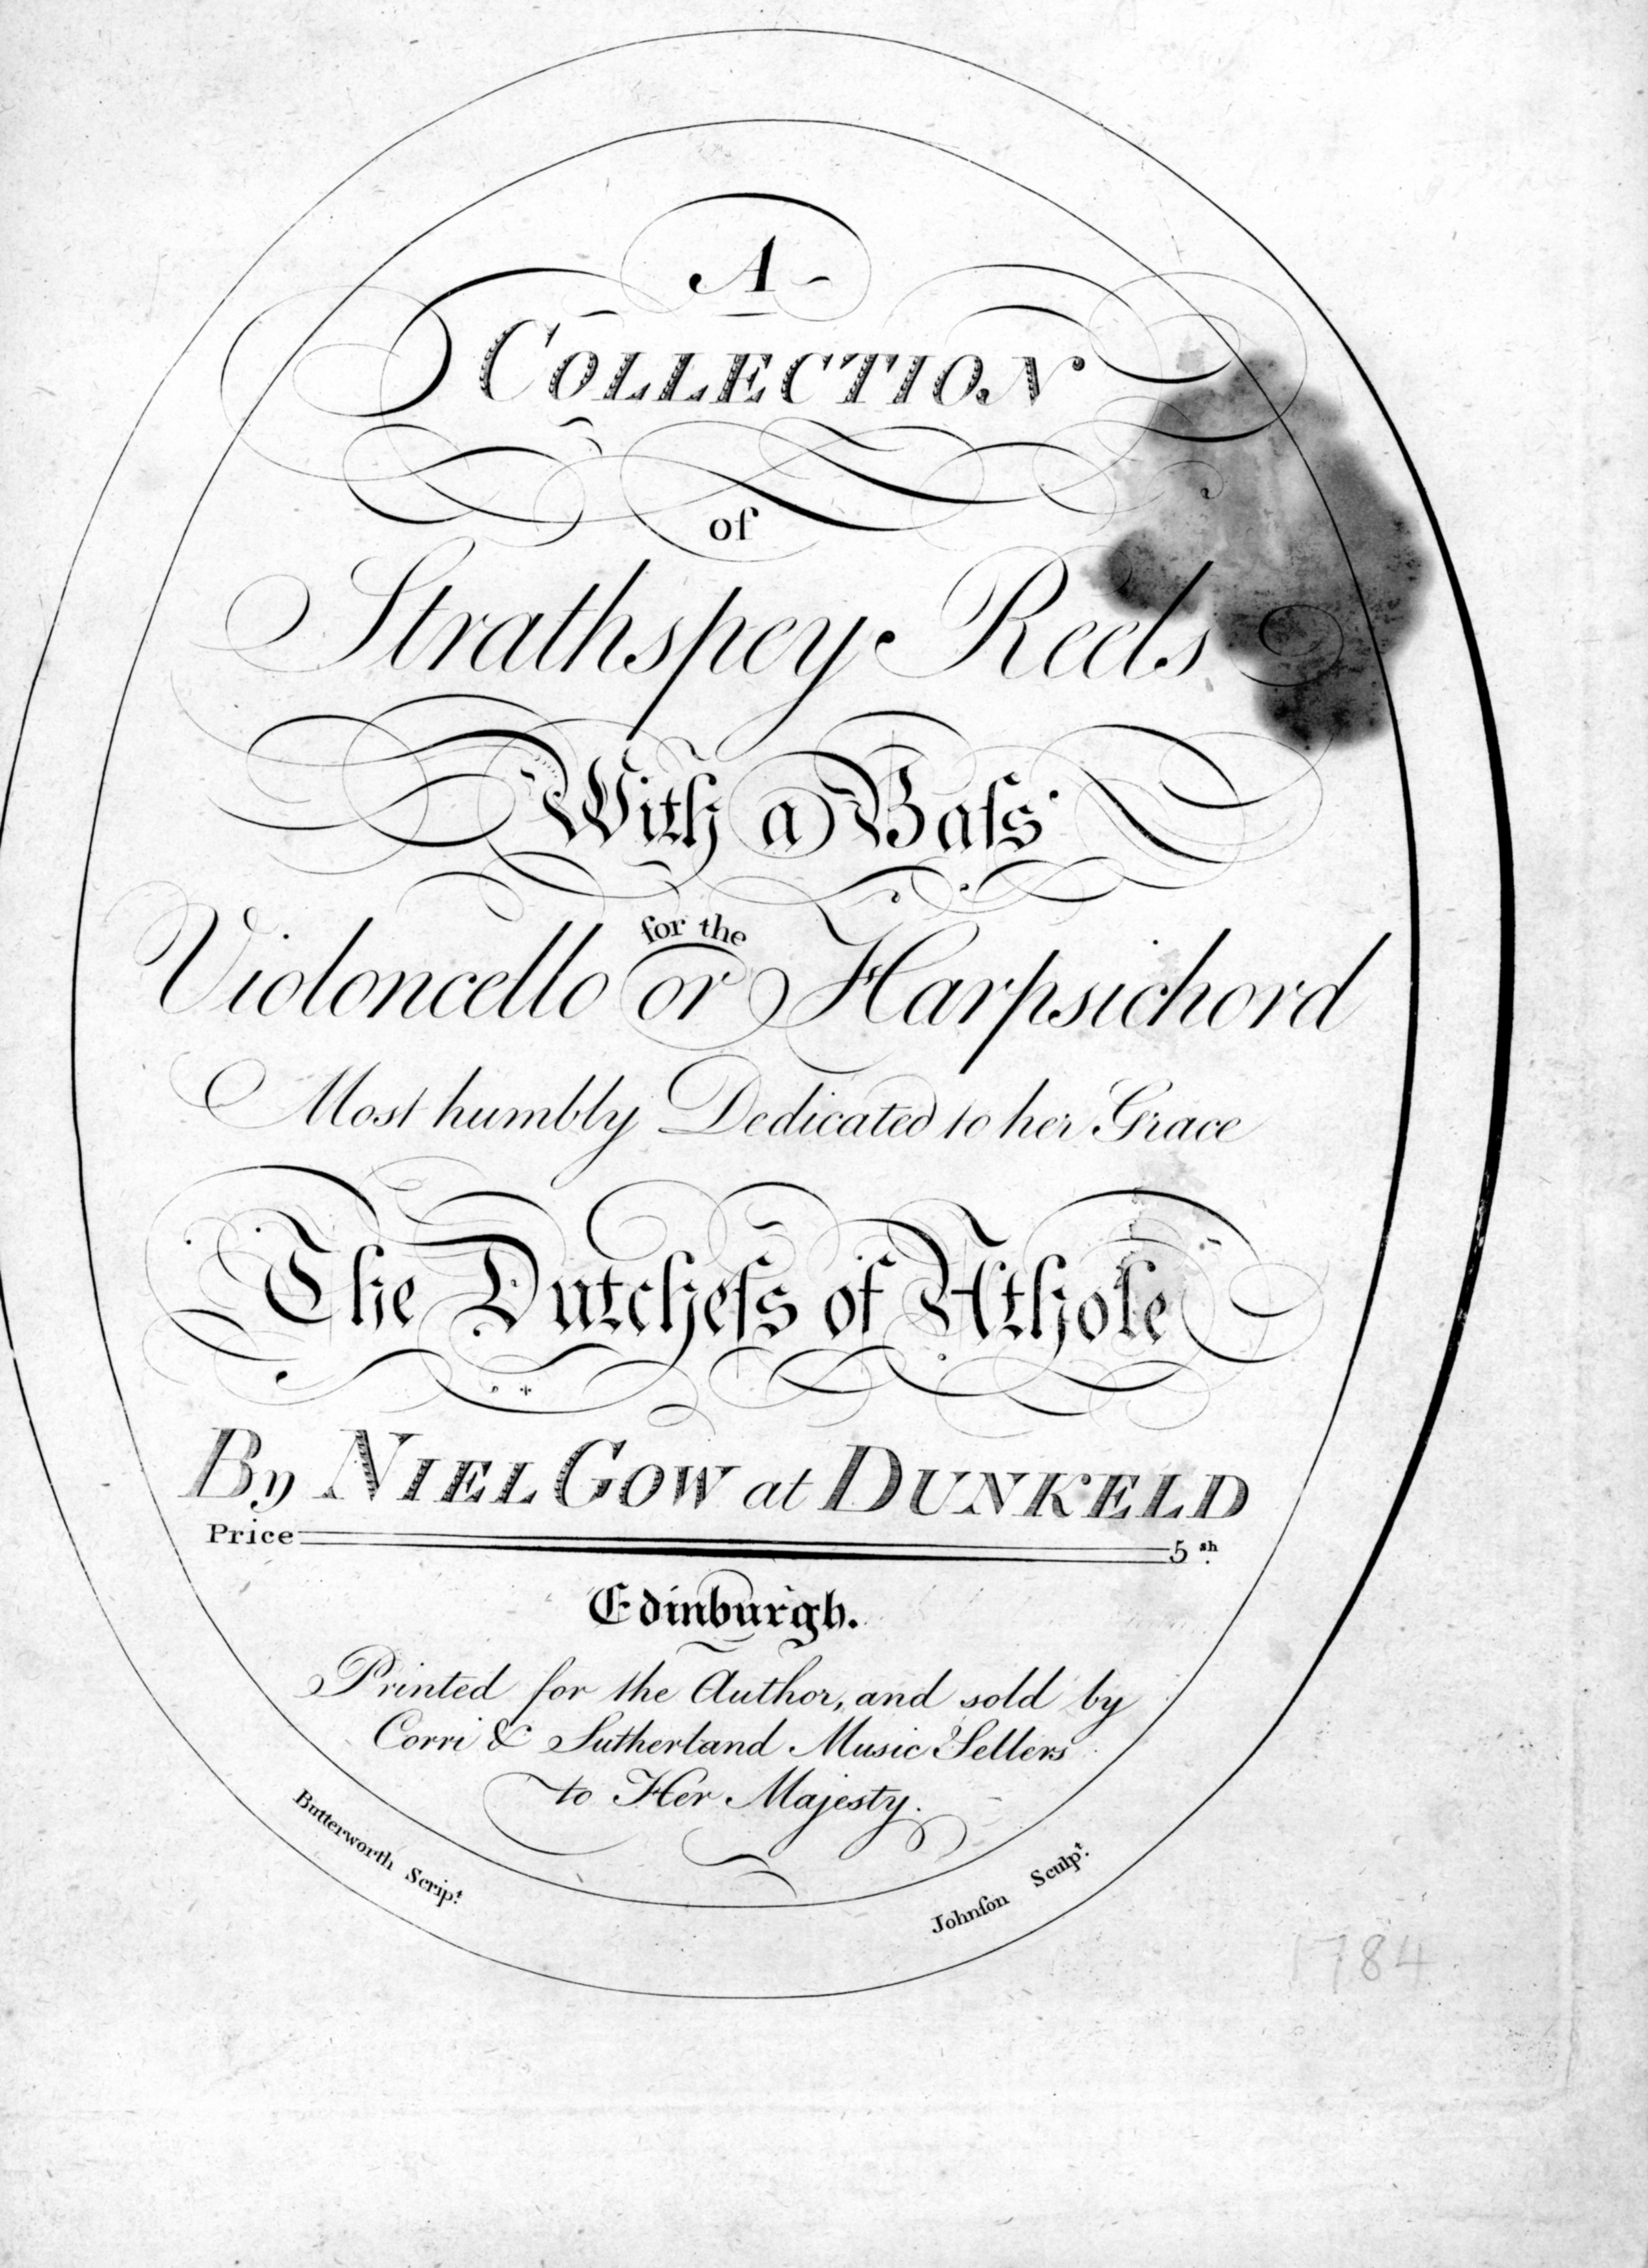 A
COLLECTION
of
Strathspey Reels
With a Baſs
for the
Violoncello or Harpsichord
Most humbly Dedicated to her Grace
The Dutcheſs of Athole
By NIEL GOW at DUNKELD
Price 5 sh.
Edinburgh.
Printed for the Author, and sold by
Corri & Sutherland Music Sellers
to Her Majesty.
Butterworth Scrip.t
Johnſon Sculp.t
1784